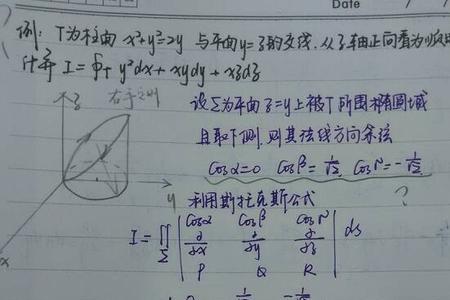 Date
例: T为柱面 x²+y²=2y 与平面y=z的交线, 从z轴正向看为顺时
计算 I=∮T y²dx+xydy+xzdz
z 右手定则
设Σ为平面z=y上被T所围椭圆域
且取下侧,则其法线方向余弦
cosα=0 cosβ=1/√2, cosγ=-1/√2
y 利用斯托克斯公式 ?
I=∬Σ | cosα cosβ cosγ | ds
∂/∂x ∂/∂y ∂/∂z
P Q R
x